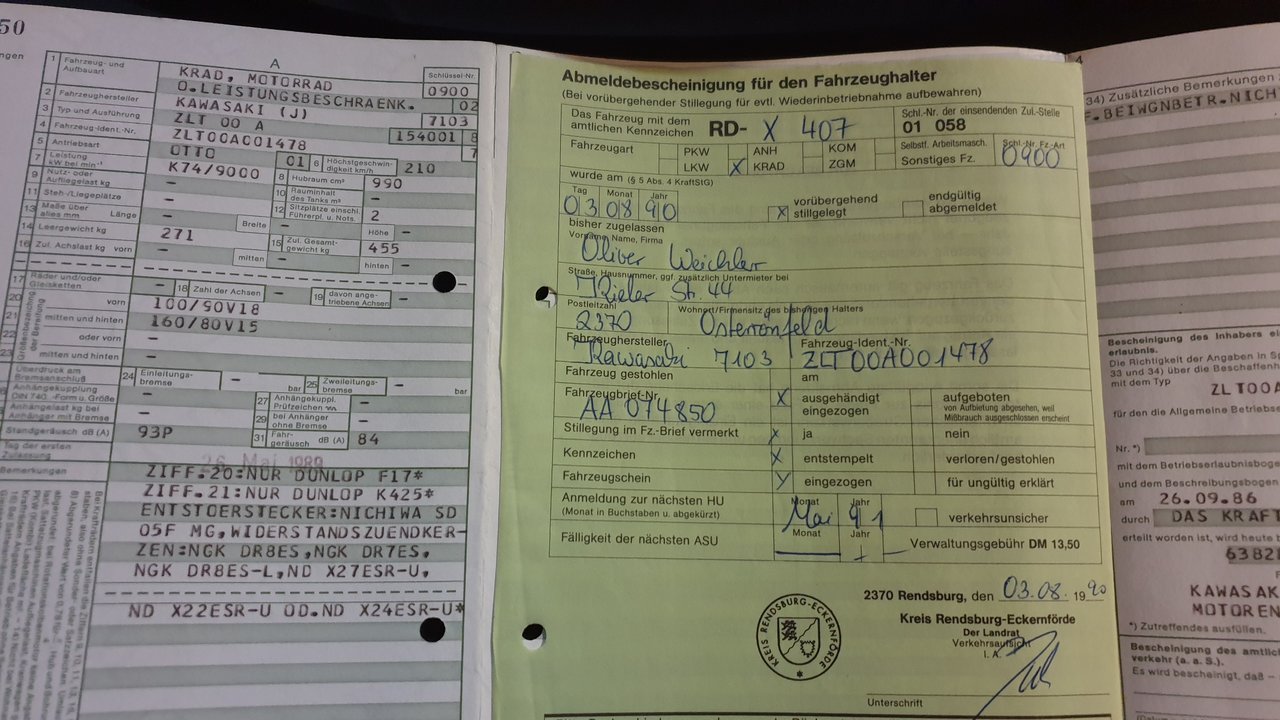 50
A
1 Fahrzeug- und Aufbauart KRAD, MOTORRAD Schlüssel-Nr. 0900
O.LEISTUNGSBESCHRAENK. 02
2 Fahrzeughersteller KAWASAKI (J) 7103
3 Typ und Ausführung ZLT 00 A 154001 8
4 Fahrzeug-Ident.-Nr. ZLT00A001478 7
5 Antriebsart OTTO 01 6 Höchstgeschwindigkeit km/h 210
7 Leistung kW bei min⁻¹ K74/9000 8 Hubraum cm³ 990
9 Nutz- oder Aufliegelast kg – 10 Rauminhalt des Tanks m³ –
11 Steh-/Liegeplätze – 12 Sitzplätze einschl. Führerpl. u. Nots. 2
13 Maße über alles mm Länge – Breite – Höhe –
14 Leergewicht kg 271 15 Zul. Gesamtgewicht kg 455
16 Zul. Achslast kg vorn – mitten – hinten –
17 Räder und/oder Gleisketten – 18 Zahl der Achsen – 19 davon angetriebene Achsen –
20 Größenbezeichnung der Bereifung vorn 100/90V18
21 mitten und hinten 160/80V15
22 oder vorn –
23 mitten und hinten –
Überdruck am Bremsanschluß 24 Einleitungsbremse – bar 25 Zweileitungsbremse – bar
Anhängekupplung DIN 740. -Form u. Größe – 27 Anhängekuppl. Prüfzeichen –
Anhängelast kg bei Anhänger mit Bremse – 29 bei Anhänger ohne Bremse –
Standgeräusch dB (A) 93P 31 Fahrgeräusch dB (A) 84
Tag der ersten Zulassung 26. Mai 1989
Bemerkungen ZIFF.20:NUR DUNLOP F17*
ZIFF.21:NUR DUNLOP K425*
ENTSTOERSTECKER:NICHIWA SD
05F MG,WIDERSTANDSZUENDKER-
ZEN:NGK DR8ES,NGK DR7ES,
NGK DR8ES-L,ND X27ESR-U,
ND X22ESR-U OD.ND X24ESR-U*
Abmeldebescheinigung für den Fahrzeughalter
(Bei vorübergehender Stillegung für evtl. Wiederinbetriebnahme aufbewahren)
Das Fahrzeug mit dem amtlichen Kennzeichen RD- X 407
Schl.-Nr. der einsendenden Zul.-Stelle 01 058
Fahrzeugart PKW ANH KOM Selbstf. Arbeitsmasch. Schl.-Nr. Fz.-Art
LKW X KRAD ZGM Sonstiges Fz. 0900
wurde am (§ 5 Abs. 4 KraftStG)
Tag Monat Jahr
03 08 90 X vorübergehend stillgelegt endgültig abgemeldet
bisher zugelassen
Vorname, Name, Firma
Oliver Weichler
Straße, Hausnummer, ggf. zusätzlich Untermieter bei
Kieler Str. 44
Postleitzahl Wohnort/Firmensitz des bisherigen Halters
2370 Osterrönfeld
Fahrzeughersteller Fahrzeug-Ident.-Nr.
Kawasaki 7103 ZLT00A001478
Fahrzeug gestohlen am
Fahrzeugbrief-Nr. AA 074850 X ausgehändigt eingezogen aufgeboten
von Aufbietung abgesehen, weil Mißbrauch ausgeschlossen erscheint
Stillegung im Fz.-Brief vermerkt x ja nein
Kennzeichen x entstempelt verloren/gestohlen
Fahrzeugschein x eingezogen für ungültig erklärt
Anmeldung zur nächsten HU (Monat in Buchstaben u. abgekürzt) Monat Mai Jahr 91 verkehrsunsicher
Fälligkeit der nächsten ASU Monat Jahr Verwaltungsgebühr DM 13,50
2370 Rendsburg, den 03.08. 1990
Kreis Rendsburg-Eckernförde
Der Landrat
Verkehrsaufsicht
I. A.
KREIS RENDSBURG-ECKERNFÖRDE
Unterschrift
4
34) Zusätzliche Bemerkungen
F.BEIWGNBETR.NICH
Bescheinigung des Inhabers
erlaubnis.
Die Richtigkeit der Angaben in
33 und 34) über die Beschaffen
mit dem Typ
ZLT00A
für die Allgemeine Betriebs
Nr. *)
mit dem Betriebserlaubnisbog
und dem Beschreibungsbogen
am 26.09.86
durch DAS KRAFT
erteilt worden ist, wird heute
6382
KAWASA
MOTOREN
*) Zutreffendes ausfüllen.
Bescheinigung des amtlic
verkehr (a. a. S.).
Es wird bescheinigt, daß –